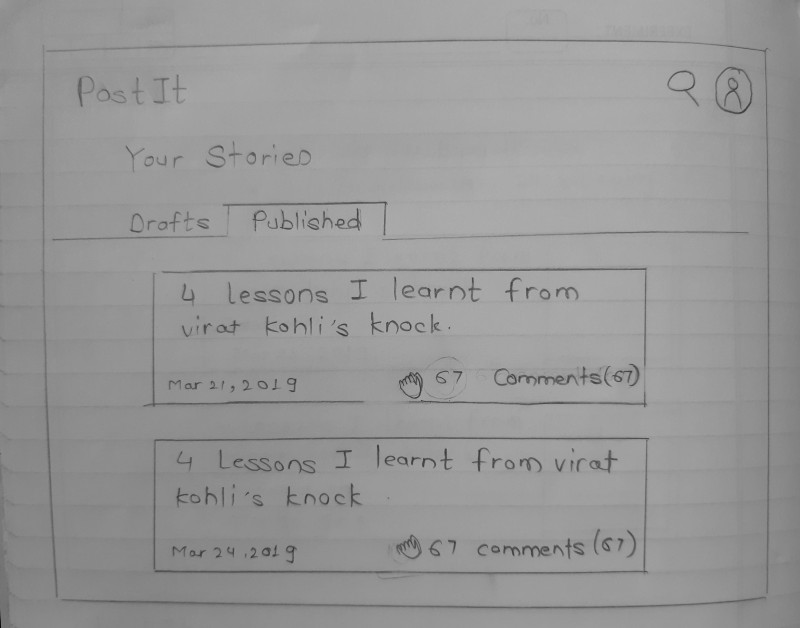 Post It
Your Stories
Drafts Published
4 lessons I learnt from
virat kohli's knock.
Mar 21, 2019 67 Comments(67)
4 Lessons I learnt from virat
kohli's knock
Mar 24, 2019 67 comments (67)